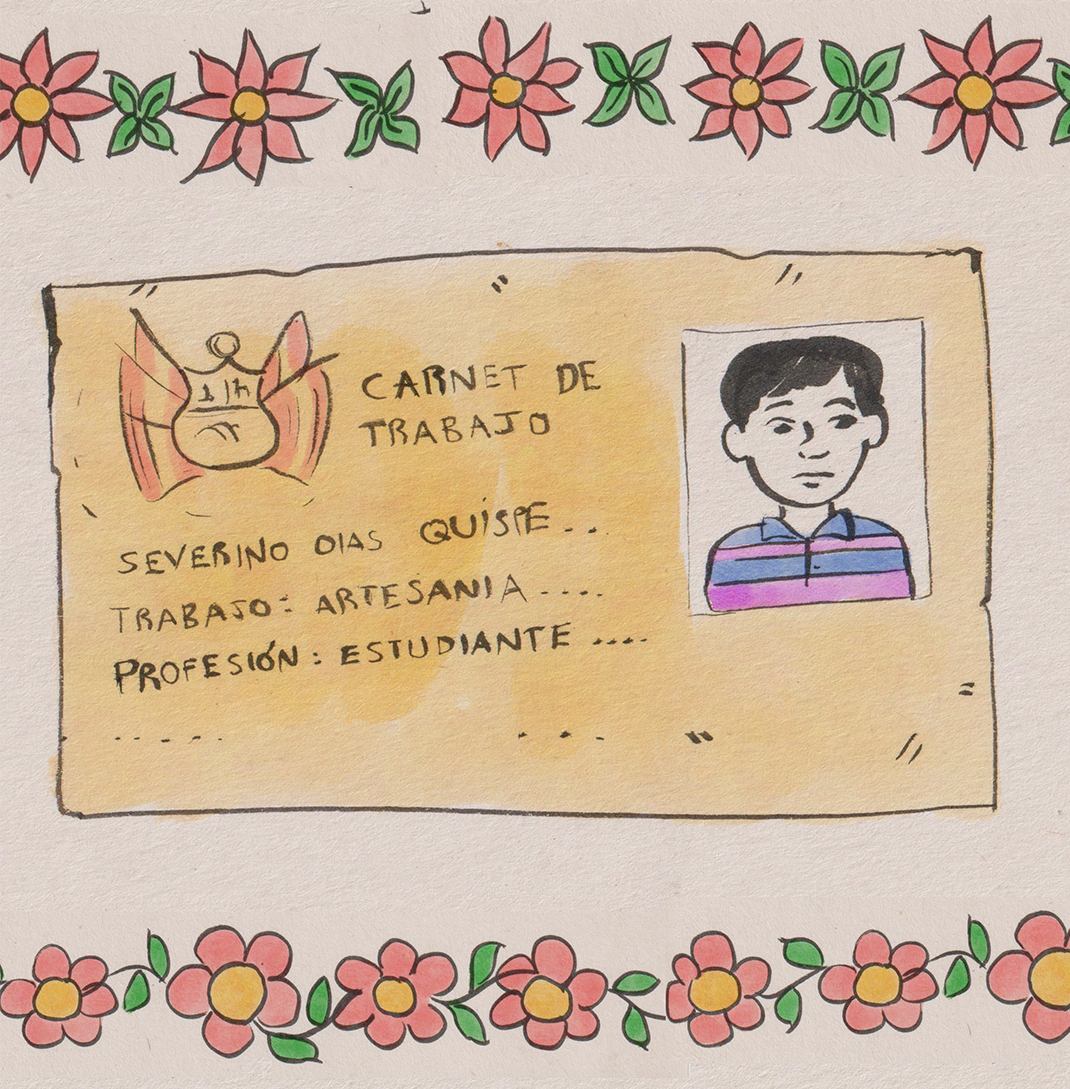 CARNET DE
TRABAJO
SEVERINO DIAS QUISPE...
TRABAJO: ARTESANIA ....
PROFESIÓN: ESTUDIANTE ....